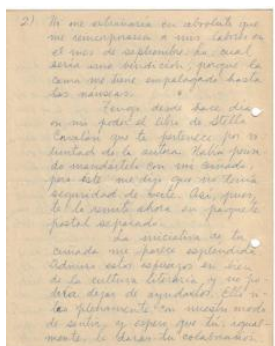 2) No me extrañaría en absoluto que
me reincorporase a mis labores en
el mes de septiembre. Lo cual
sería una bendición, porque la
cama me tiene empalagado hasta
las náuseas.
Tengo desde hace días
en mi poder el libro de Stella
que te pertenece por vo-
luntad de la autora. Había pensa-
do mandártelo con mi cuñado,
pero éste me dijo que no tenía
seguridad de verte. Así, pues,
te lo remito ahora en paquete
postal separado.
La iniciativa de tu
cuñada me parece espléndida.
Admiro estos esfuerzos en bien
de la cultura literaria y no po-
dría dejar de ayudarlos.
plenamente con nuestro modo
de sentir, y espero que tú, igual-
mente, le darás tu colaboración.